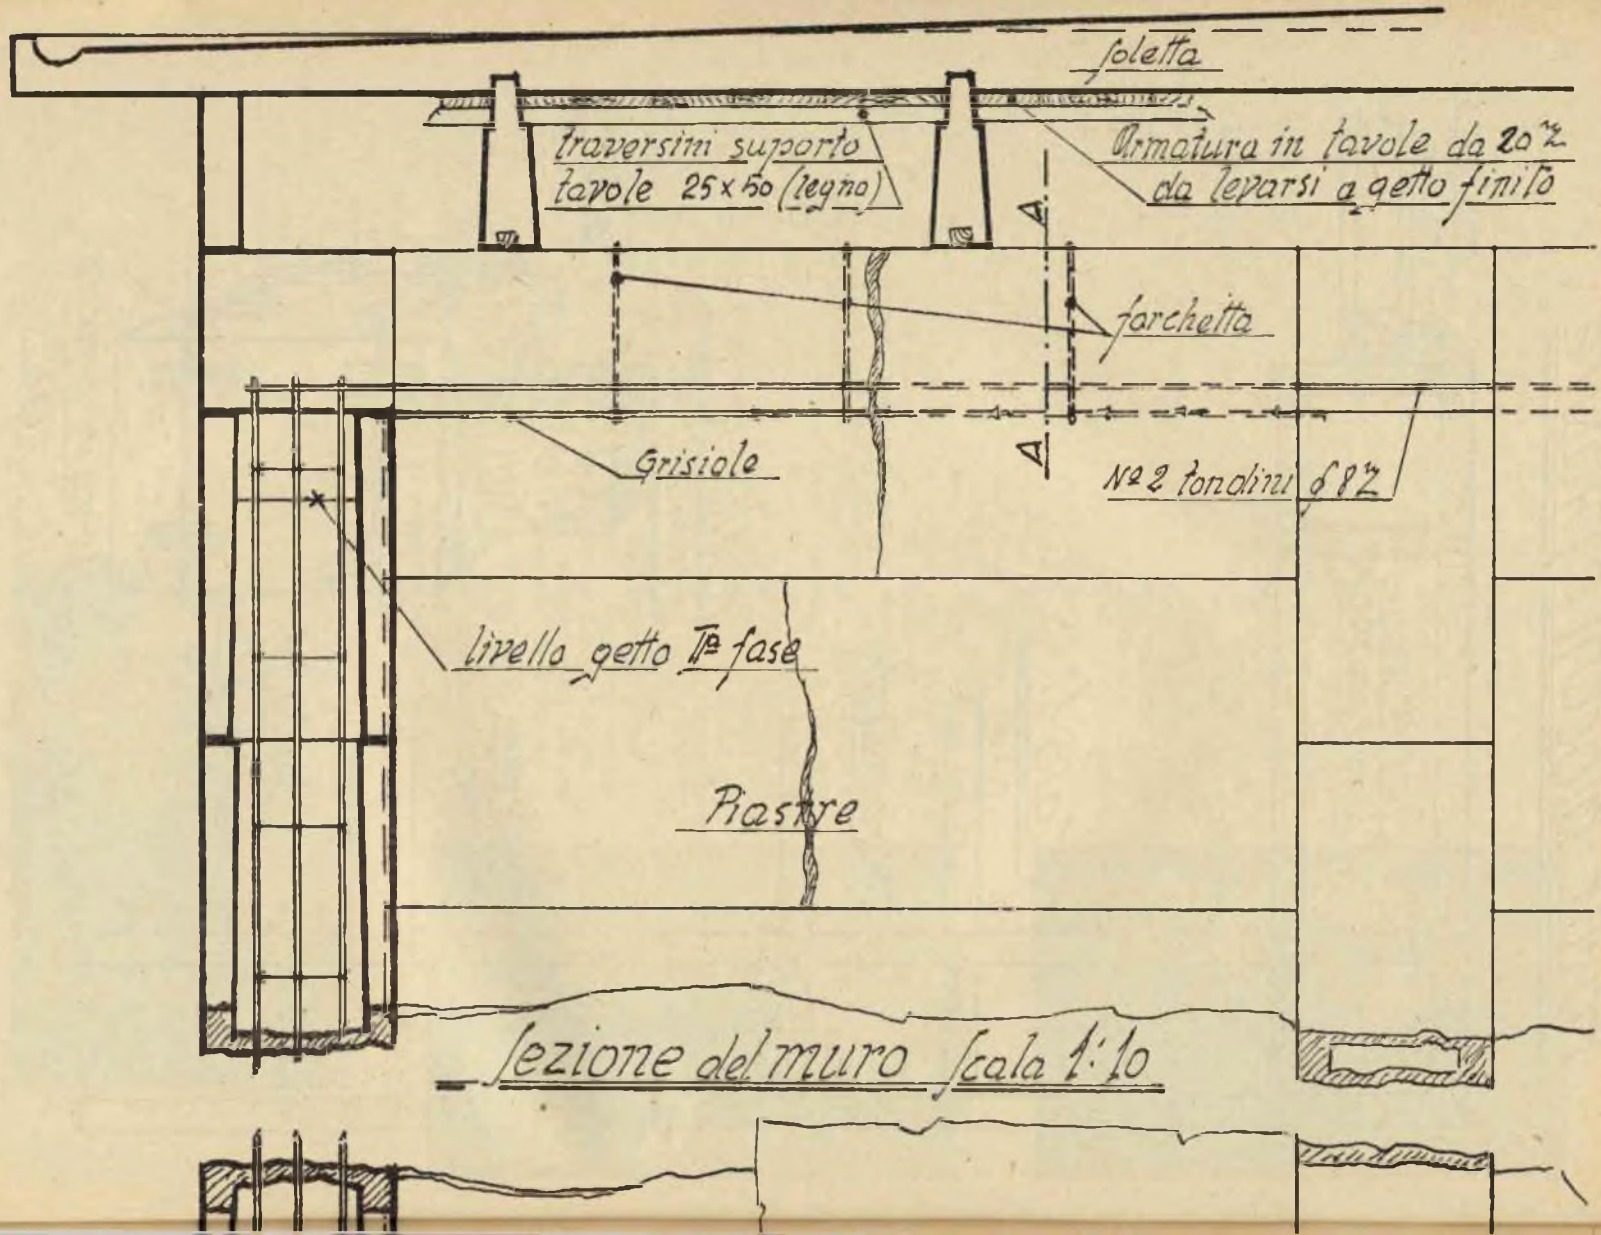 soletta
traversini suporto
tavole 25x50 (legno)
Armatura in tavole da 20 m/m
da levarsi a getto finito
A
forchetta
A
Grisiole
Nº 2 tondini ϕ 8 m/m
livello getto IIª fase
Piastre
Sezione del muro Scala 1:10